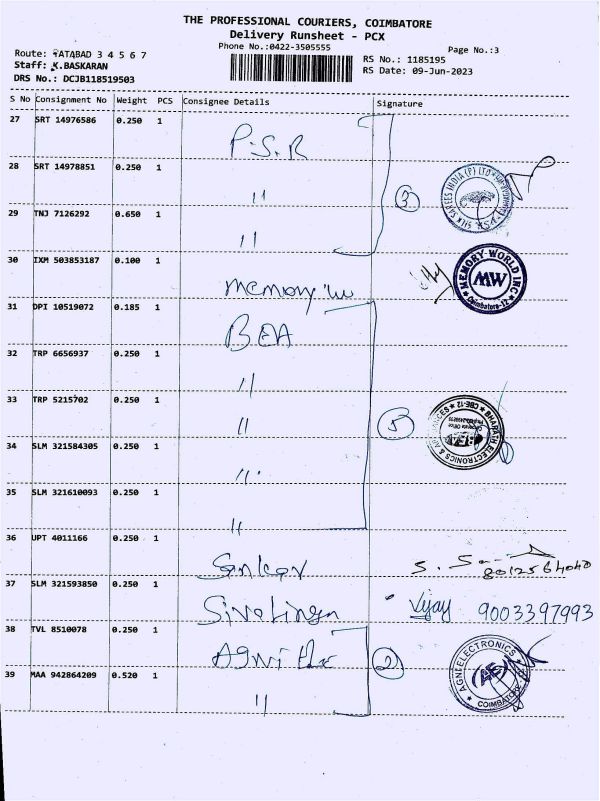 THE PROFESSIONAL COURIERS, COIMBATORE
Delivery Runsheet - PCX
Phone No.:0422-3505555
Page No.:3
Route: TATABAD 3 4 5 6 7
Staff: K.BASKARAN
DRS No.: DCJB118519503
RS No.: 1185195
RS Date: 09-Jun-2023
S No Consignment No Weight PCS Consignee Details Signature
27 SRT 14976586 0.250 1 P.S.R
28 SRT 14978851 0.250 1 "
29 TNJ 7126292 0.650 1 "
3
30 IXM 503853187 0.100 1 memory
MEMORY WORLD INC
MW
Coimbatore-12
31 DPI 10519072 0.185 1 BEA
32 TRP 6656937 0.250 1 "
33 TRP 5215702 0.250 1 "
5
BHARATH ELECTRONICS & APPLIANCES
CBE-12
34 SLM 321584305 0.250 1 "
35 SLM 321610093 0.250 1 "
36 UPT 4011166 0.250 1 8012564040
37 SLM 321593850 0.250 1 Sivalingam Vijay 9003397993
38 TVL 8510078 0.250 1
2
AGNI ELECTRONICS
AE
COIMBATORE
39 MAA 942864209 0.520 1 "